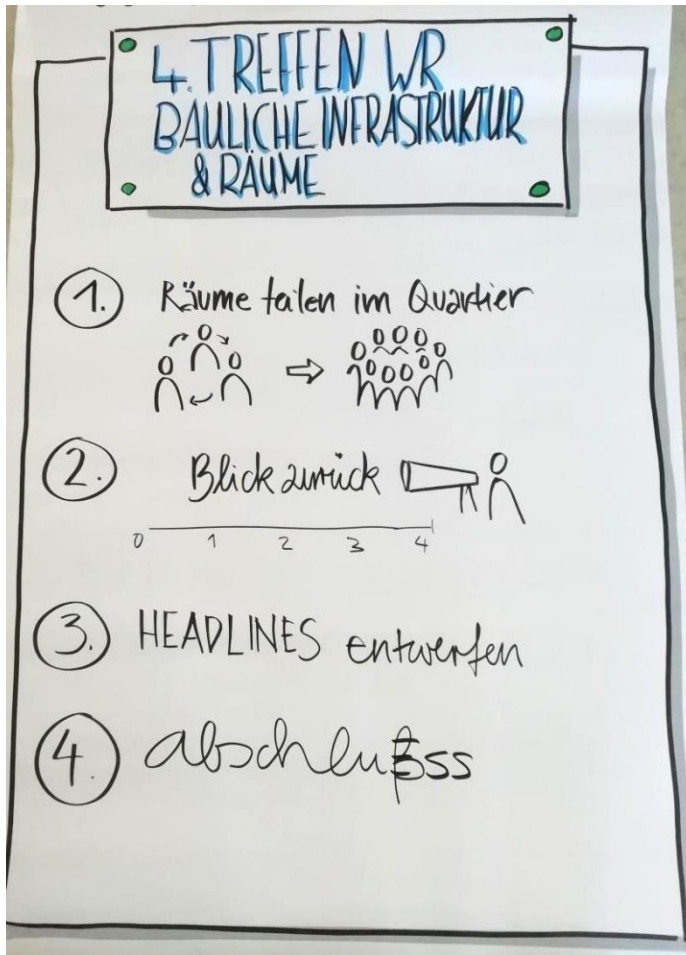 4. TREFFEN WR
BAULICHE INFRASTRUKTUR
& RÄUME
1. Räume teilen im Quartier
2. Blick zurück
0 1 2 3 4
3. HEADLINES entwerfen
4. abschluss